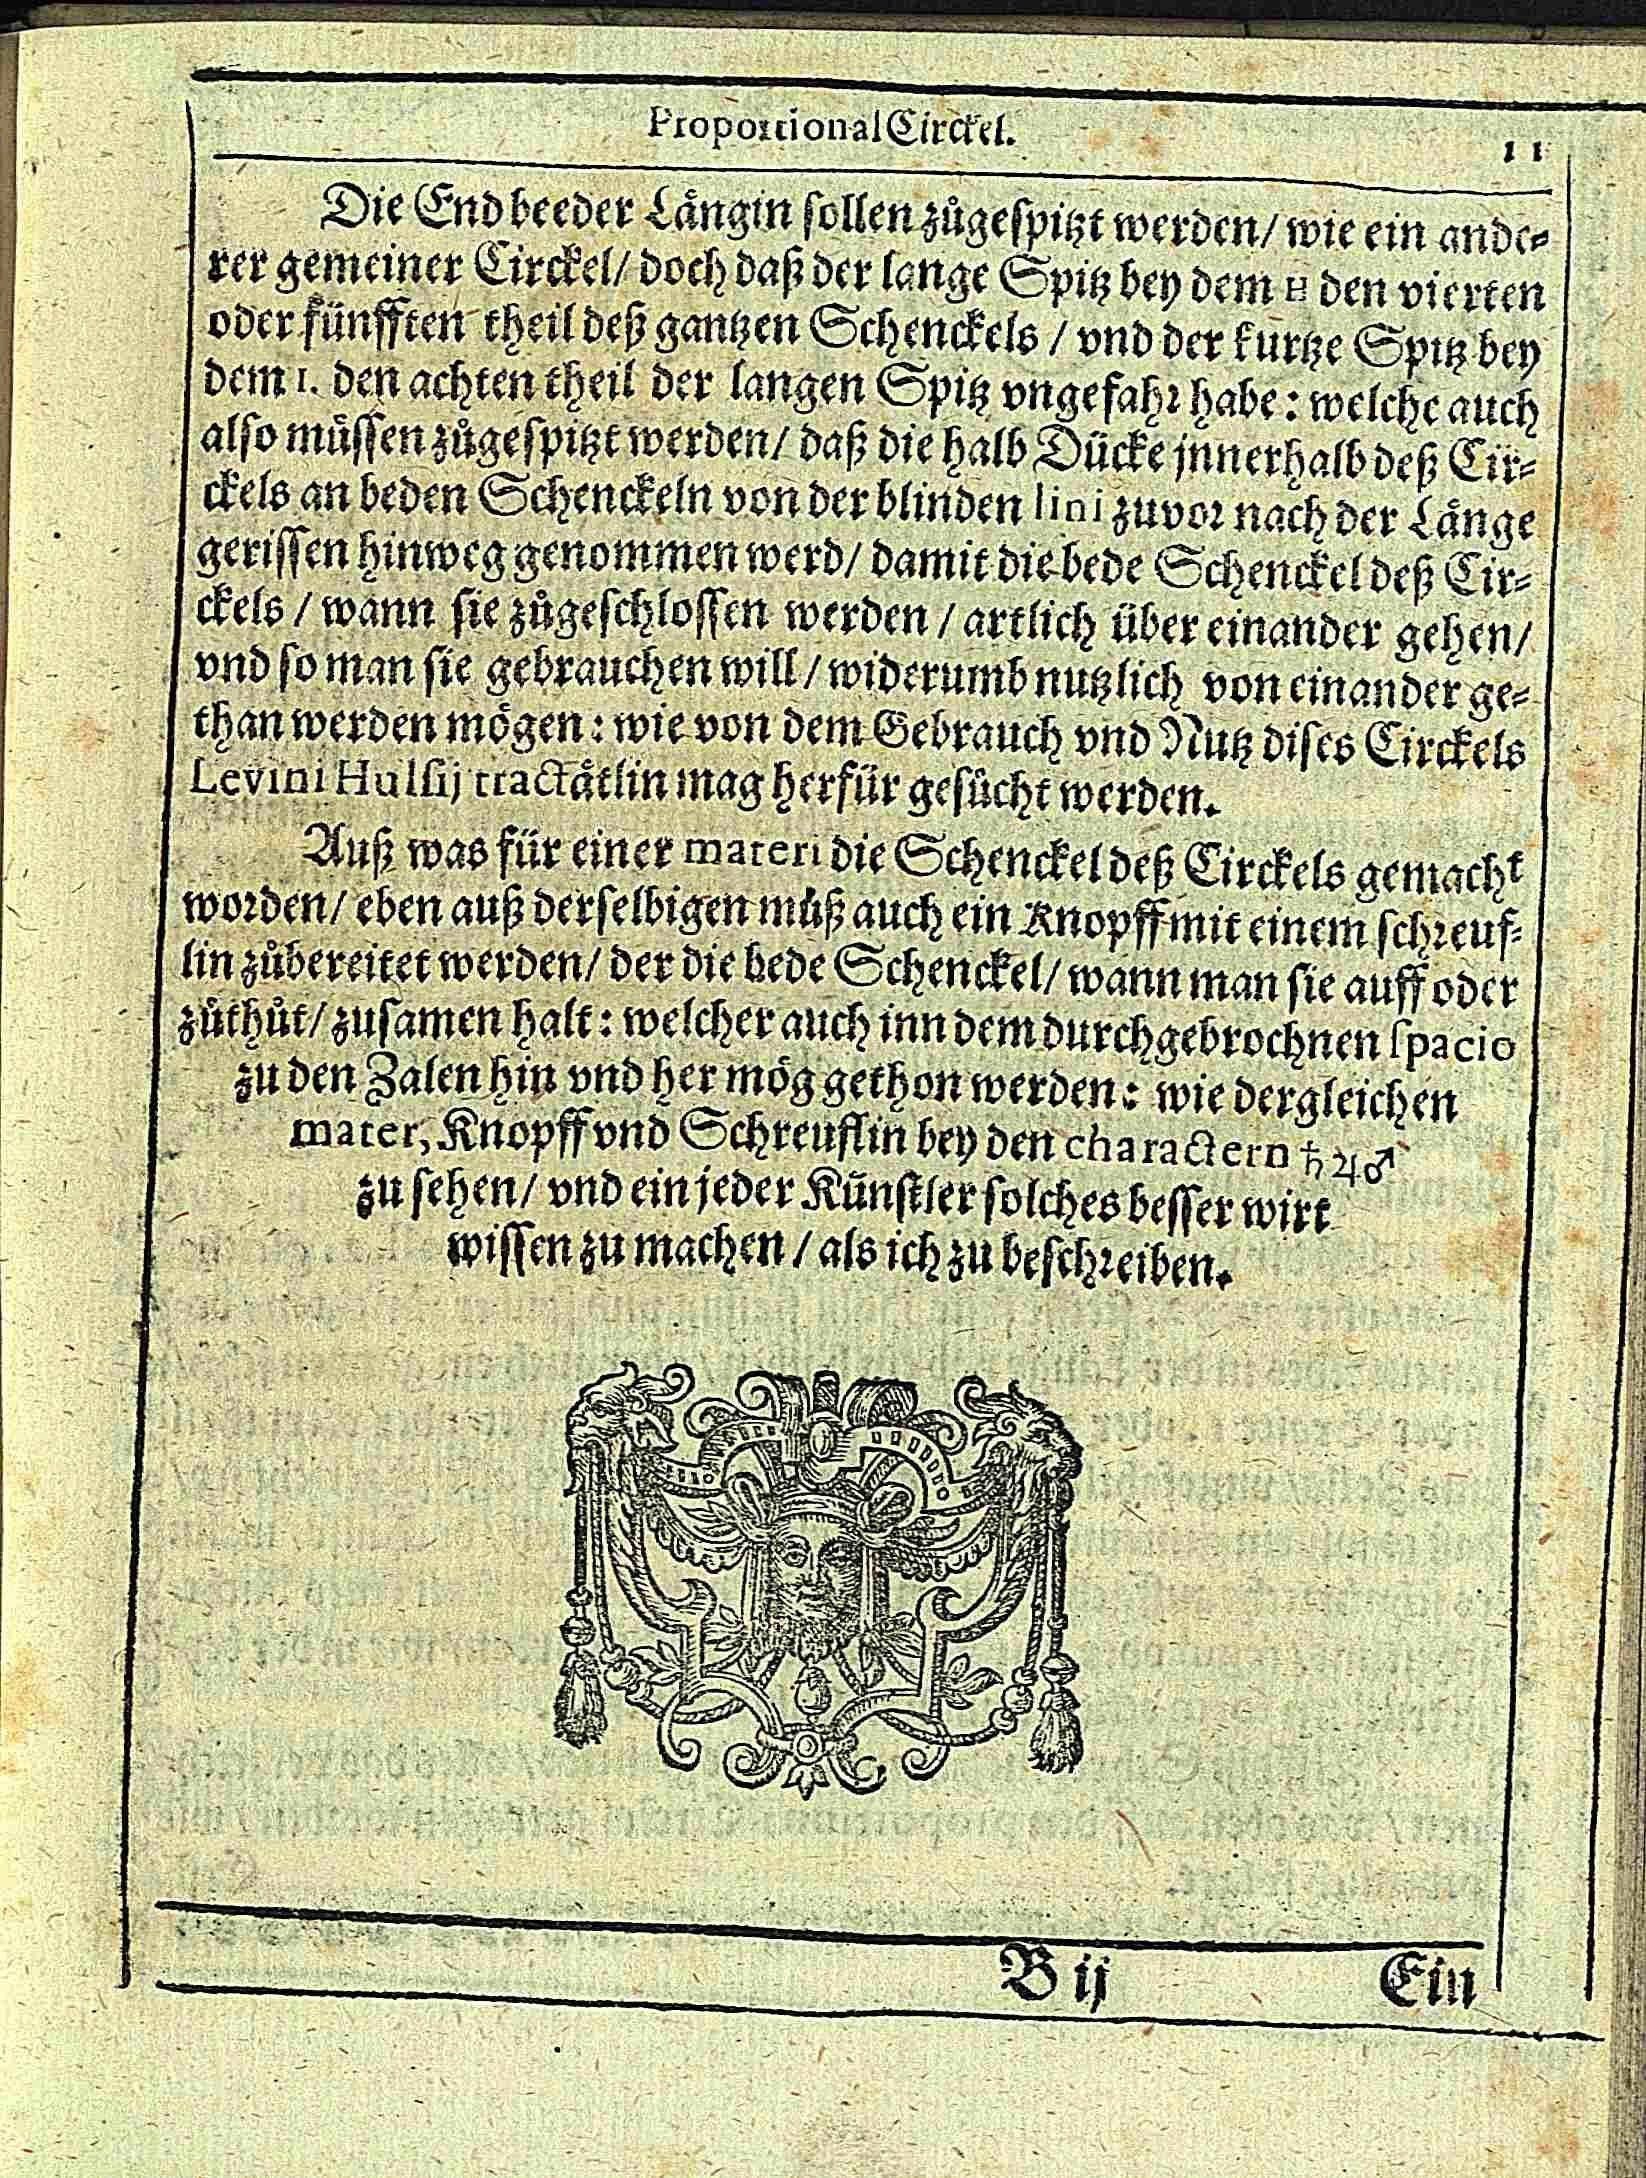 Proportional Circkel.
11
Die End beeder Längin sollen zůgespitzt werden/ wie ein ande⸗
rer gemeiner Circkel/ doch daß der lange Spitz bey dem H den vierten
oder fünfften theil deß gantzen Schenckels / vnd der kurtze Spitz bey
dem 1. den achten theil der langen Spitz vngefahr habe: welche auch
also müssen zůgespitzt werden/ daß die halb Dücke jnnerhalb deß Cir⸗
ckels an beden Schenckeln von der blinden lini zuvor nach der Länge
gerissen hinweg genommen werd/ damit die bede Schenckel deß Cir⸗
ckels / wann sie zůgeschlossen werden / artlich über einander gehen/
vnd so man sie gebrauchen will / widerumb nutzlich von einander ge⸗
than werden mögen: wie von dem Gebrauch vnd Nutz dises Circkels
Levini Hulsij tractätlin mag herfür gesůcht werden.
Auß was für einer materi die Schenckel deß Circkels gemacht
worden/ eben auß derselbigen můß auch ein Knopff mit einem schreuf⸗
lin zůbereitet werden/ der die bede Schenckel/ wann man sie auff oder
zůthůt/ zusamen halt: welcher auch inn dem durchgebrochnen spacio
zu den Zalen hin vnd her mög gethon werden: wie dergleichen
mater, Knopff vnd Schreuflin bey den charactern ♄ ♃ ♂
zu sehen/ vnd ein jeder Künstler solches besser wirt
wissen zu machen / als ich zu beschreiben.
B ij
Ein